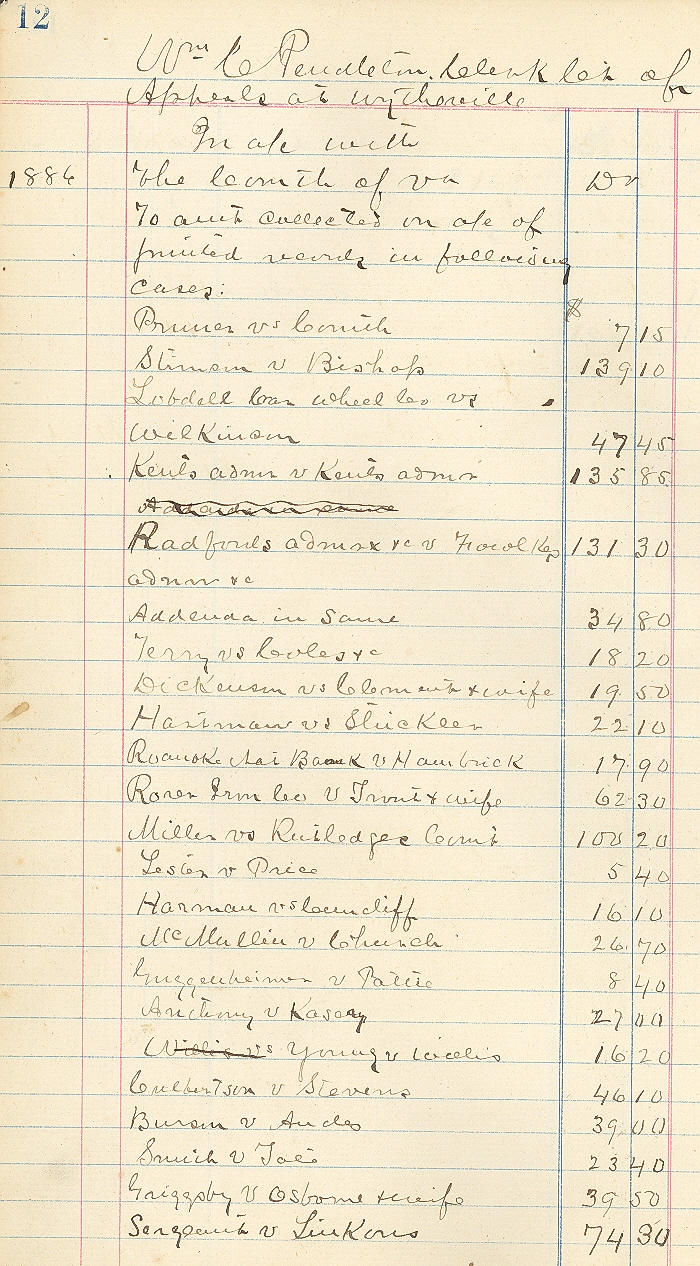 12
Wm C Pendleton, Clerk Ct of
Appeals at Wytheville
In a/c with
1886 The Comth of Va Dr
To amt collected on a/c of
printed records in following
cases: $
Pruner vs Comth 7 15
Stimson v Bishop 139 10
Lobdell Car wheel Co vs
Wilkinson 47 45
Kents admr v Kents admr 135 85
Addenda in same
Radfords admrx &c v Fowlkes 131 30
admr &c
Addenda in Same 34 80
Terry vs Coles &c 18 20
Dickenson vs Clements & wife 19 50
Hartman vs Strickler 22 10
Roanoke Nat Bank v Hambrick 17 90
Rorer Iron Co v Trout & wife 62 30
Miller vs Rutledge Comt 100 20
Lester v Price 5 40
Harman vs Cundiff 16 10
McMullin v Church 26 70
Guggenheimer v 8 40
Anthony v Kasey 27 00
Willis vs Young v Willis 16 20
Culbertson v Stevens 46 10
Burson v Andes 39 00
Smith v 23 40
Griggsby v Osborne & wife 39 50
Sergeant v Linkous 74 30